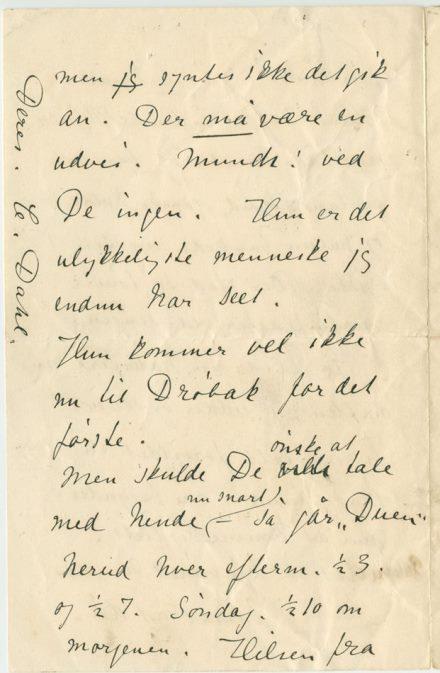 men jeg syntes ikke det gik
an. Der må være en
udvei. Munch! ved
De ingen. Hun er det
ulykkeligste menneske jeg
endnu har seet.
Hun kommer vel ikke
nu til Drøbak for det
første.
ønske at
Men skulde De vilde tale
nu snart,
med hende – Så går „Duen"
herud hver efterm. ½ 3.
og ½ 7. Søndag. ½ 10 om
morgenen. Hilsen fra
Deres. C. Dahl.